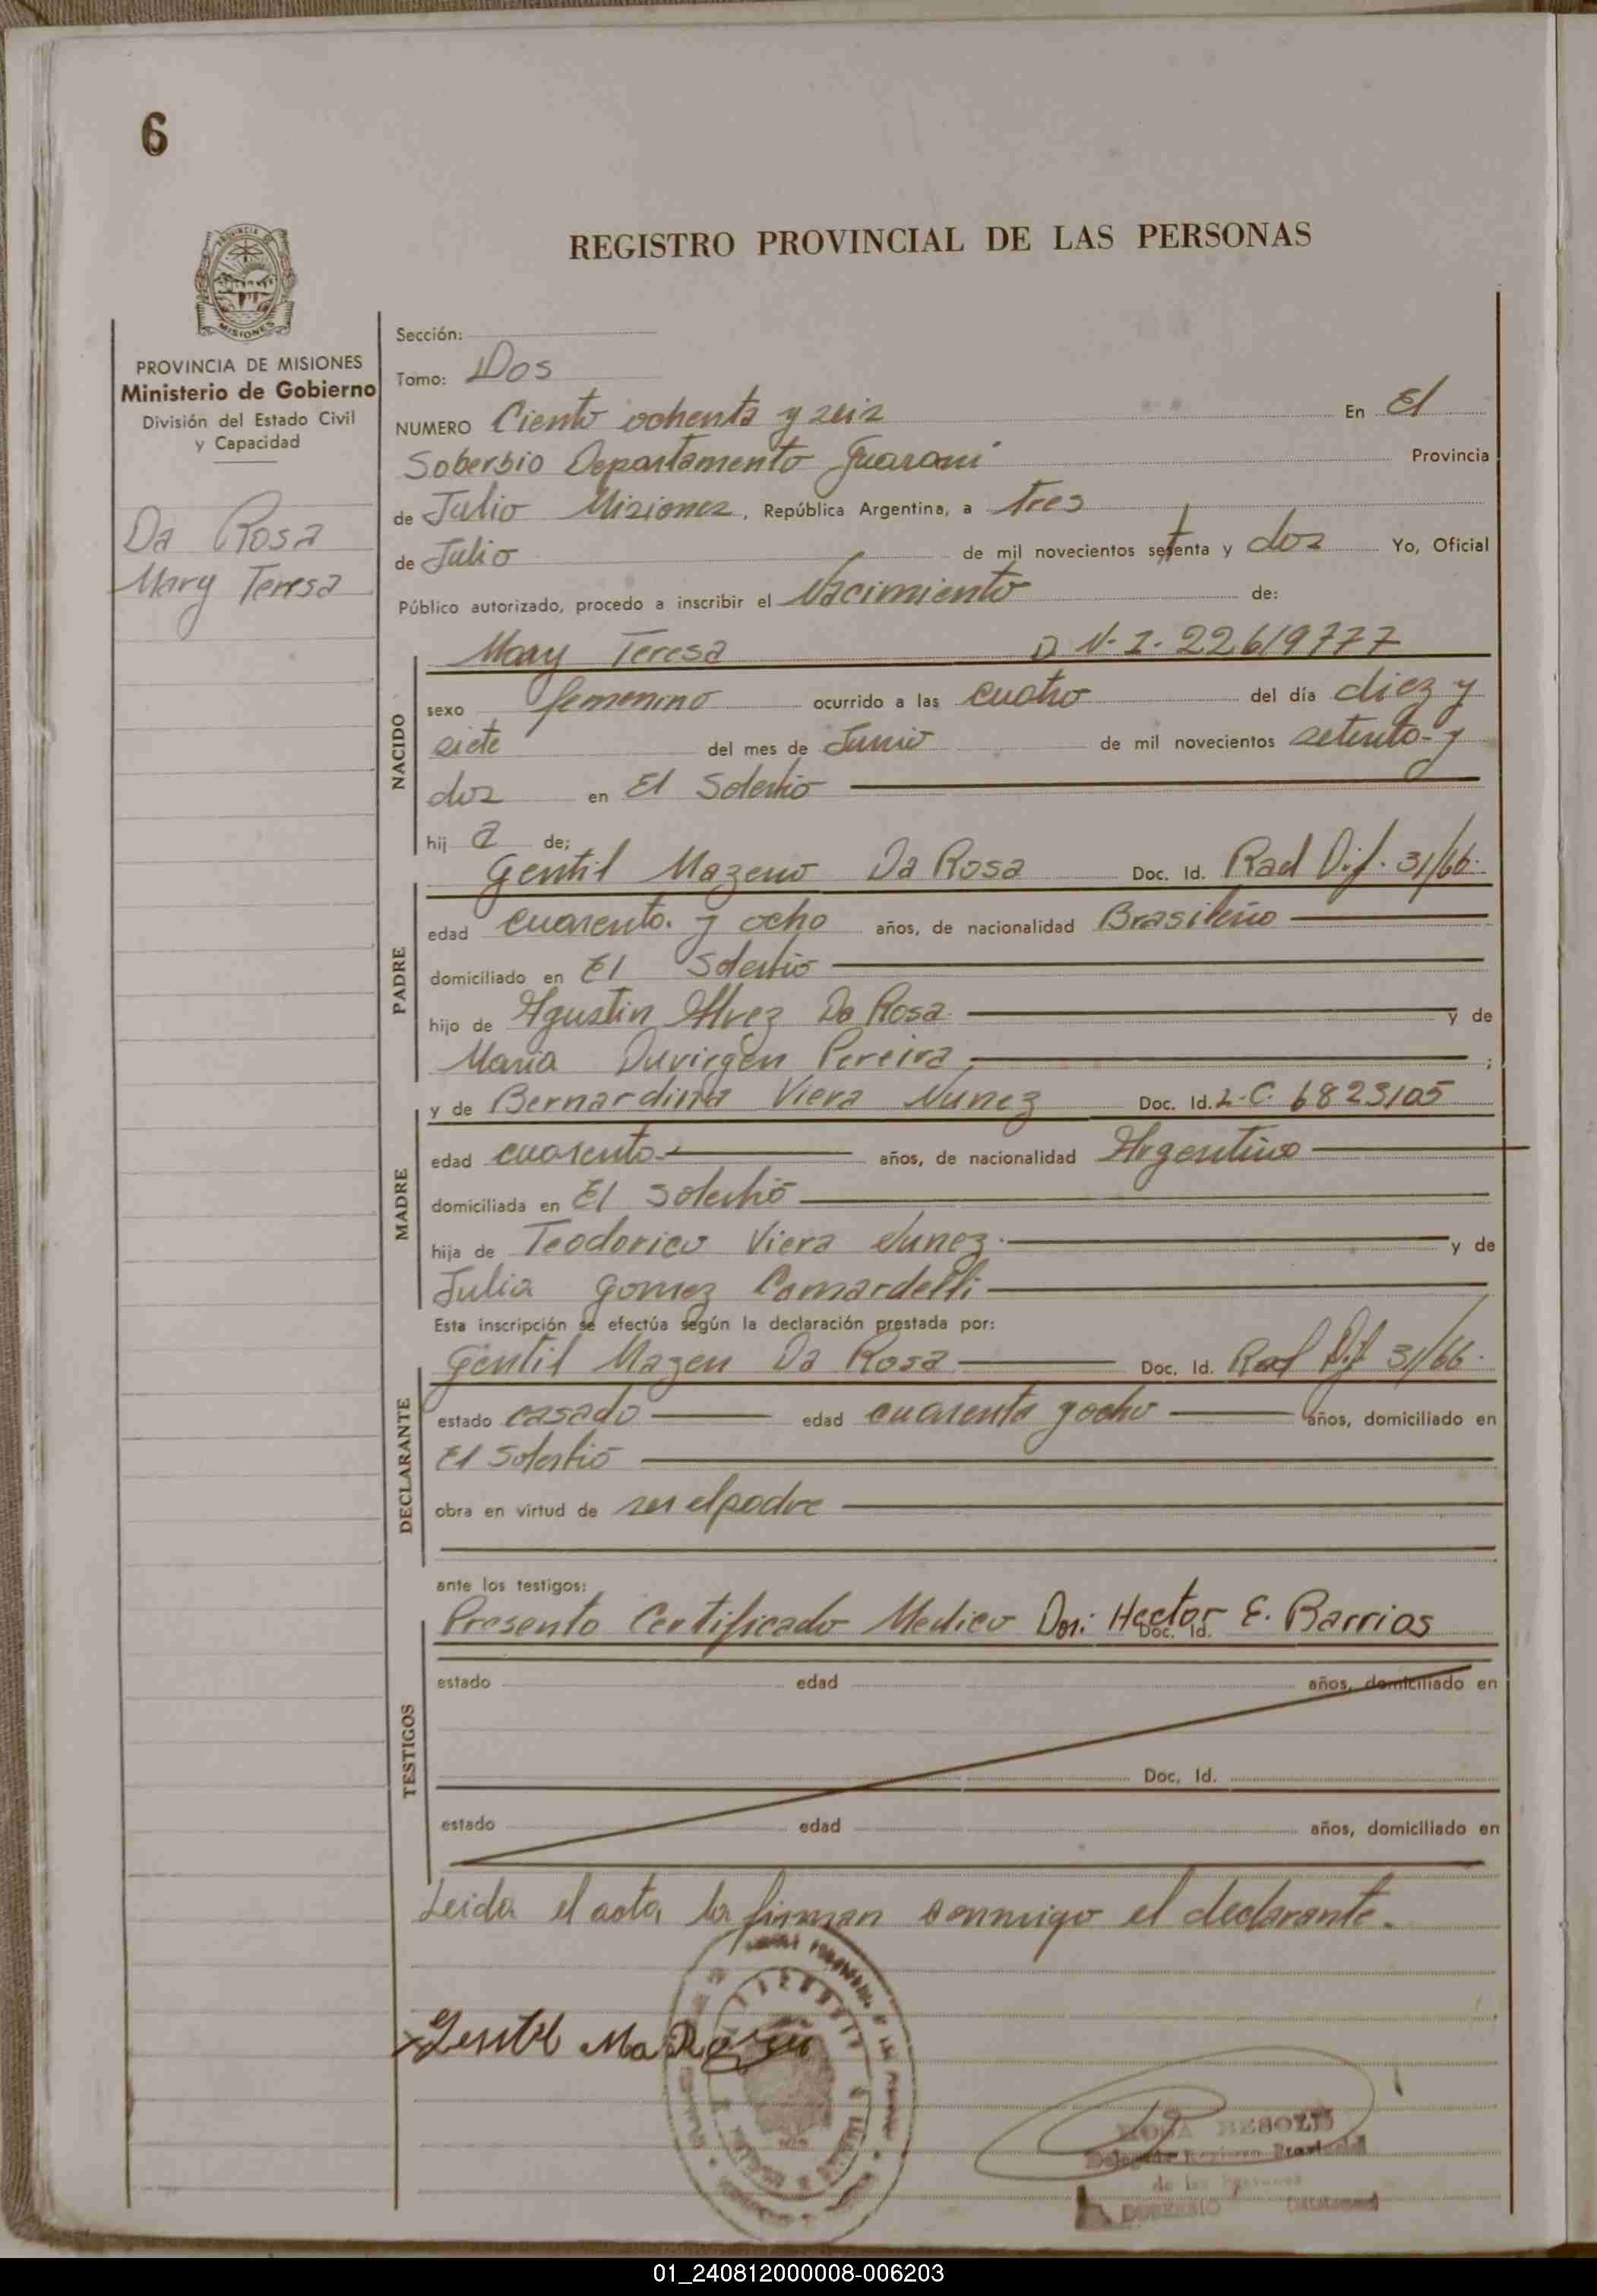 6
REGISTRO PROVINCIAL DE LAS PERSONAS
PROVINCIA DE
MISIONES
PROVINCIA DE MISIONES
Ministerio de Gobierno
División del Estado Civil
y Capacidad
Da Rosa
Mary Teresa
Sección:
Tomo: Dos
NUMERO Ciento ochenta y seis En El
Soberbio Departamento Guarani Provincia
de Julio Misiones, República Argentina, a tres
de Julio de mil novecientos setenta y dos Yo, Oficial
Público autorizado, procedo a inscribir el Nacimiento de:
NACIDO
Mary Teresa D N. I. 22619777
sexo femenino ocurrido a las cuatro del día diez y
siete del mes de Junio de mil novecientos setenta y
dos en El Soberbio
hija de;
PADRE
Gentil Mazeno Da Rosa Doc. Id. Rad Dif. 31/66.
edad cuarenta y ocho años, de nacionalidad Brasileño
domiciliado en El Soberbio
hijo de Agustin Alvez Da Rosa y de
Maria Duvirgen Pereira;
MADRE
y de Bernardina Viera Nunez Doc. Id. L.C. 6823105
edad cuarenta años, de nacionalidad Argentina
domiciliada en El Soberbio
hija de Teodorico Viera Nunez y de
Julia Gomez Comardelli
Esta inscripción se efectúa según la declaración prestada por:
DECLARANTE
Gentil Mazen Da Rosa Doc. Id. Rad Dif 31/66.
estado casado edad cuarenta y ocho años, domiciliado en
El Soberbio
obra en virtud de ser el padre
ante los testigos:
TESTIGOS
Presento Certificado Medico Dor: Hector E. Barrios
Doc. Id.
estado edad años, domiciliado en
Doc. Id.
estado edad años, domiciliado en
Leida el acta la firman conmigo el declarante.
Gentil Ma Rozu
ROSA BESOLD
Delegada Registro Provincial
de las Personas
SOBERBIO (Misiones)
01_240812000008-006203